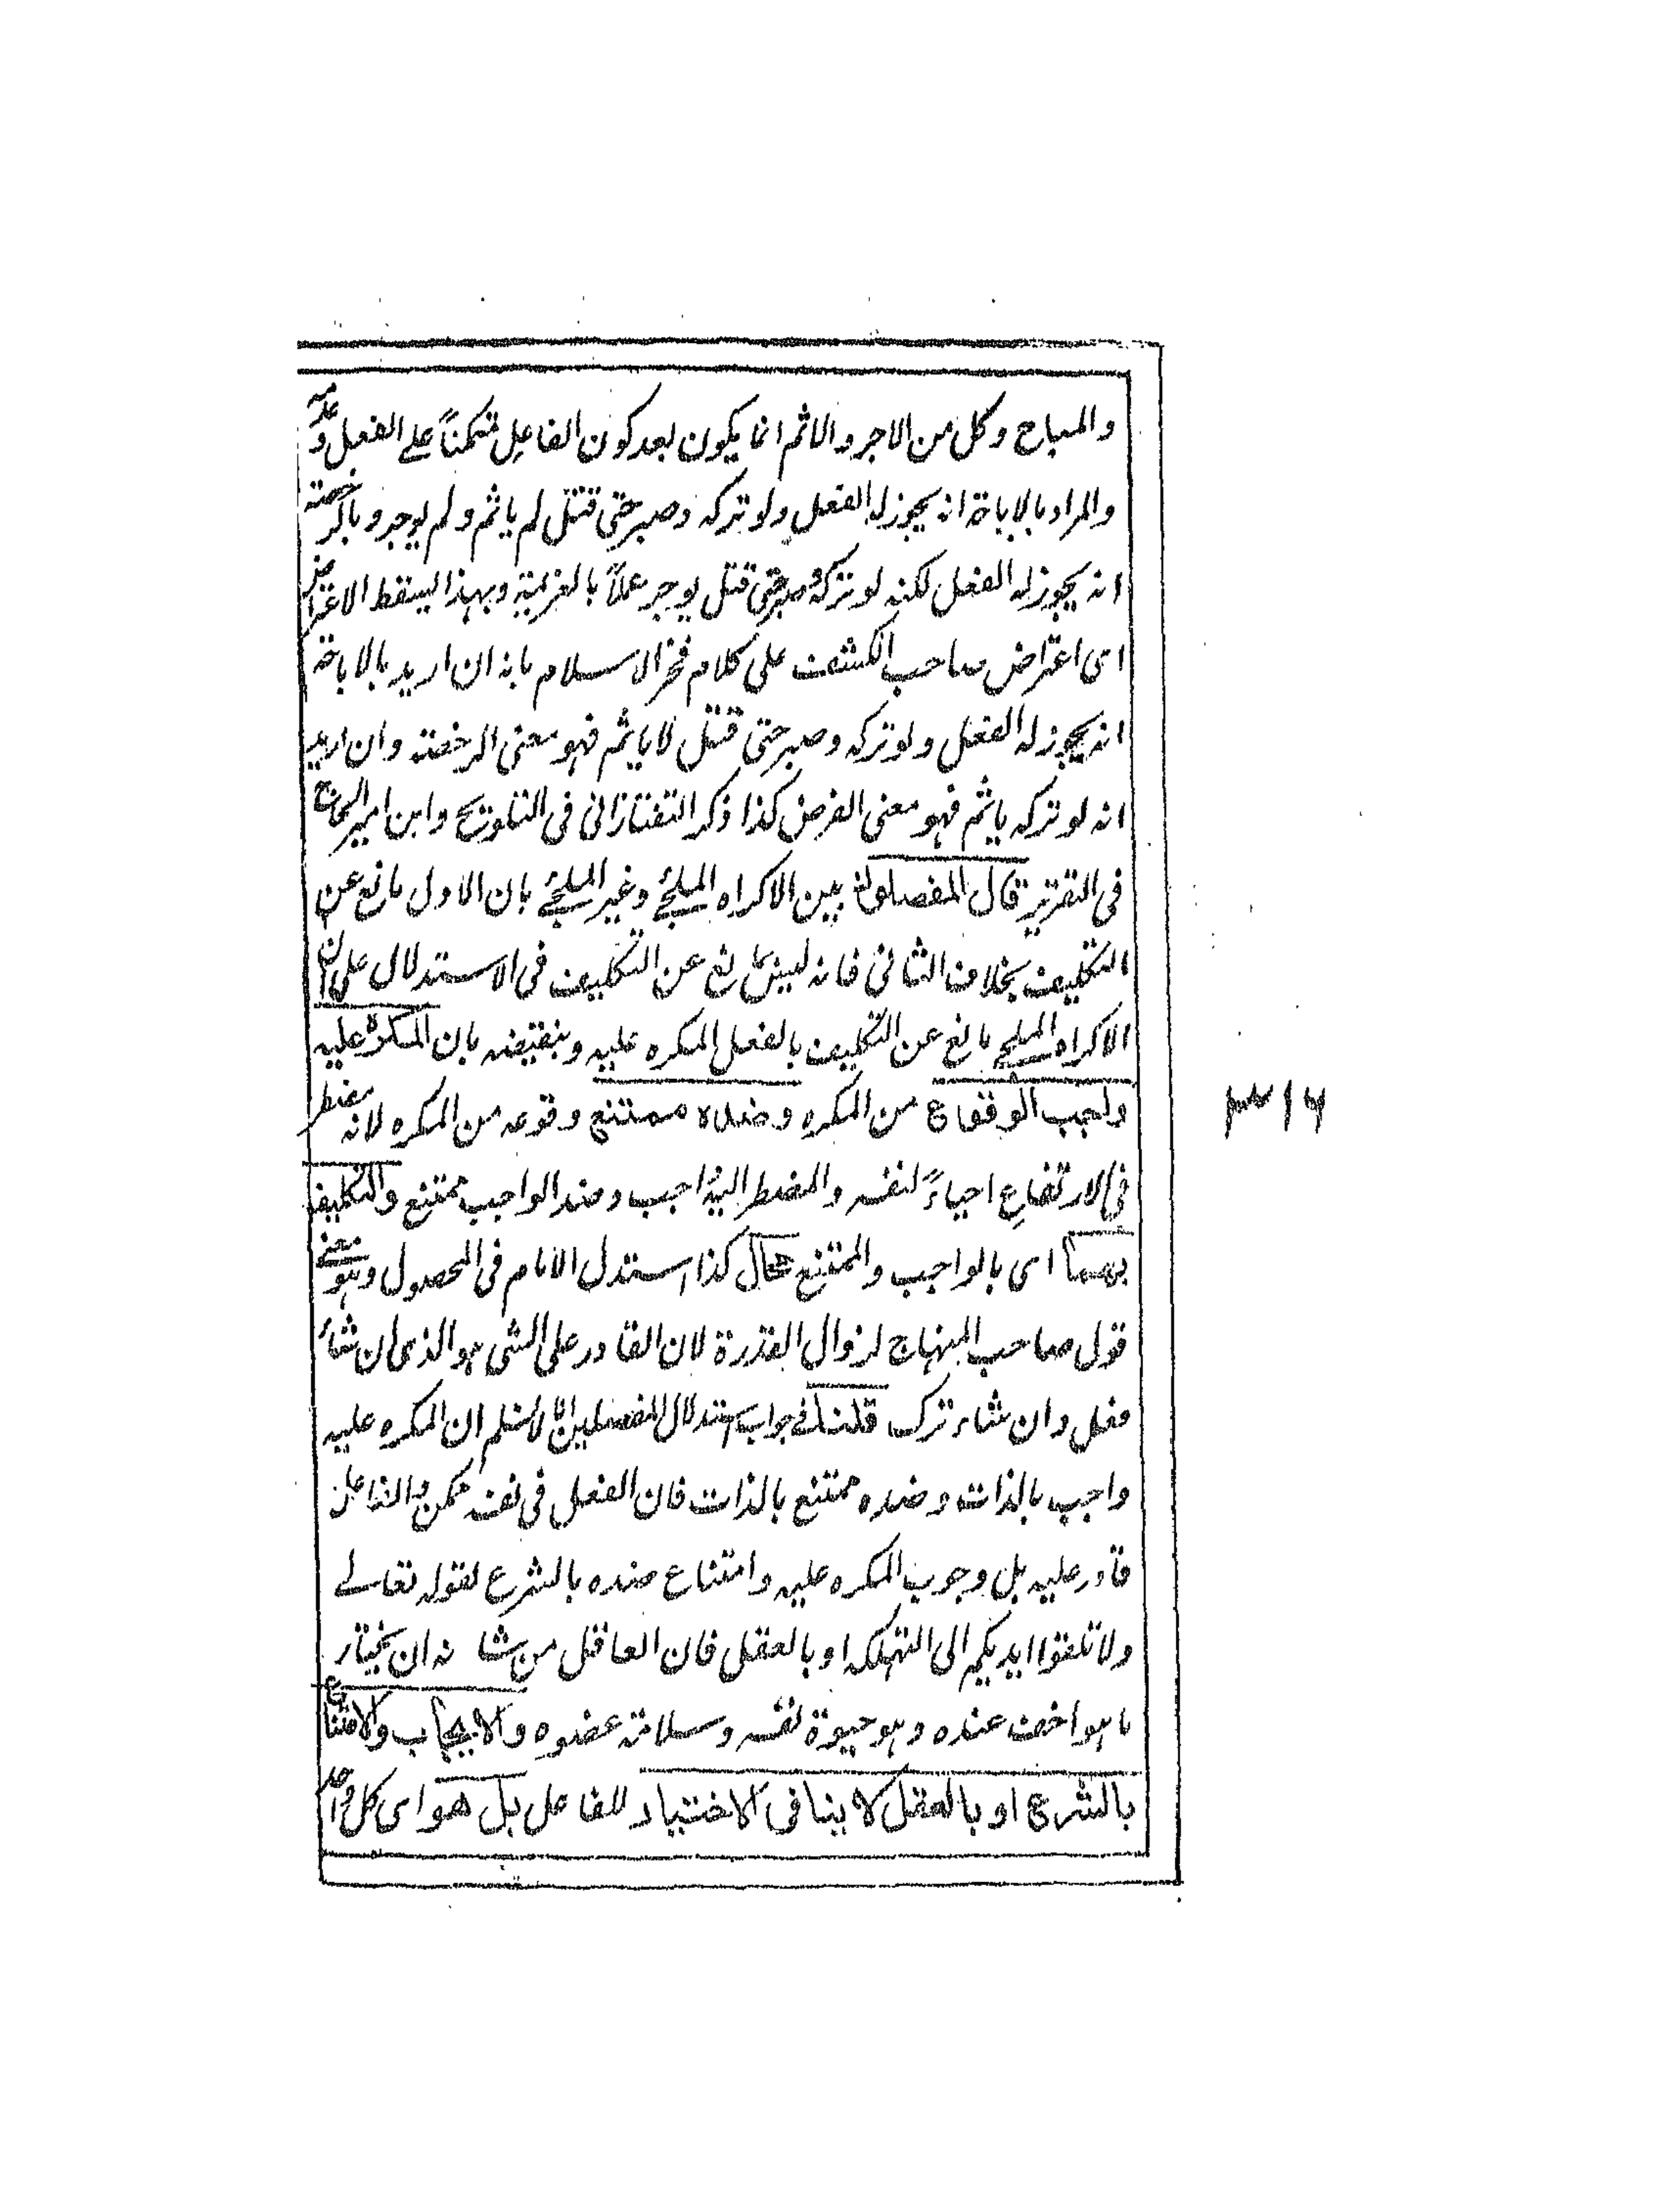 والمباح وكل من الاجر والاثم انما يكون بعد كون الفاعل متمكناً على الفعل وعدمه
والمراد بالاباحة انه يجوز له الفعل ولو تركه وصبر حتى قتل لم ياثم ولم يوجر وبالرخصة
انه يجوز له الفعل لكنه لو تركه وصبر حتى قتل يوجر عملاً بالعزيمة وبهذا يسقط الاعتراض
اى اعتراض صاحب الكشف على كلام فخر الاسلام بانه ان اريد بالاباحة
انه يجوز له الفعل ولو تركه وصبر حتى قتل لا ياثم فهو معنى الرخصة وان اريد
انه لو تركه ياثم فهو معنى الفرض كذا ذكر التفتازانى فى التلويح وابن امير الحاج
فى التقرير قال المفصلون بين الاكراه الملجئ وغير الملجئ بان الاول مانع عن
التكليف بخلاف الثانى فانه ليس بمانع عن التكليف فى الاستدلال على ان
الاكراه الملجئ مانع عن التكليف بالفعل المكره عليه وبنقيضه بان المكره عليه
واجب الوقوع من المكره وضده ممتنع وقوعه من المكره لانه مضطر
فى الارتفاع احياءً لنفسه والمضطر اليه واجب وضد الواجب ممتنع والتكليف
بهما اى بالواجب والممتنع محال كذا استدل الامام فى المحصول وهو معنى
قول صاحب المنهاج لزوال القدرة لان القادر على الشى هو الذى ان شاء
فعل وان شاء ترك قلنا فى جواب استدلال المفصلين انا لا نسلم ان المكره عليه
واجب بالذات وضده ممتنع بالذات فان الفعل فى نفسه ممكن والفاعل
قادر عليه بل وجوب المكره عليه وامتناع ضده بالشرع لقوله تعالى
ولا تلقوا ايديكم الى التهلكه او بالعقل فان العاقل من شانه ان يختار
ما هو اخف عنده وهو حيوة نفسه وسلامة عضوه والايجاب والامتناع
بالشرع او بالعقل لا ينافى الاختيار للفاعل بل هو اى كل واحد
٣١٦